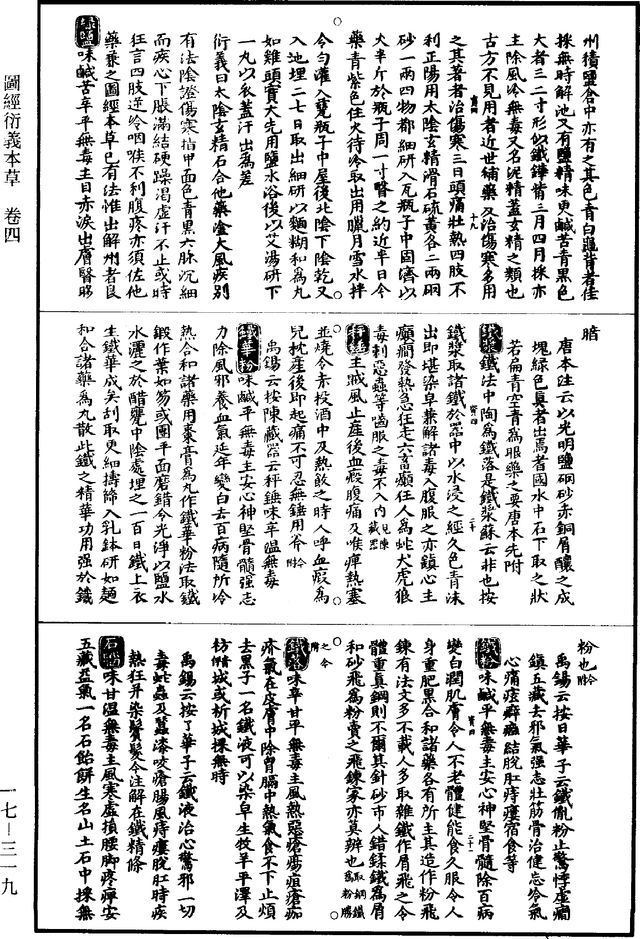 圖經衍義本草 卷四
一七—三一九
州積鹽倉中亦有之其色青白龜背者佳
採無時解池又有鹽精味更鹹苦青黑色
大者三二寸形似鐵鏵觜三月四月採亦
主除風冷無毒又名泥精蓋玄精之類也
古方不見用者近世補藥及治傷寒多用
之其著者治傷寒三日頭痛壯熱四肢不
利正陽丹太陰玄精消石硫黃各二兩硇
砂一兩四物都細研入瓦瓶子中固濟以
火半斤於瓶子周一寸熁之約近半日令
藥青紫色住火待冷取出用臘月雪水拌
令勻灌入甕瓶子中屋後北陰下陰乾又
入地埋二七日取出細研以麵糊和為丸
如雞頭實大先用鹽水浴後以艾湯研下
一丸以衣蓋汗出為差
衍義曰太陰玄精石合他藥塗大風疾別
有法陰證傷寒指甲面色青黑六脉沉細
而疾心下脹滿結硬躁渴虛汗不止或時
狂言四肢逆冷咽喉不利腹疼亦須佐他
藥兼之圖經本草已有法惟出解州者良
綠鹽味鹹苦辛平無毒主目赤淚出膚瞖眵
暗
唐本注云以光明鹽硇砂赤銅屑釀之成
塊綠色真者出焉耆國水中石下取之狀
若扁青空青為眼藥之要唐本先附
鐵漿鐵法中陶為鐵落是鐵漿蘇云非也按
鐵漿取諸鐵於器中以水浸之經久色青沫
出即堪染皁兼解諸毒入腹服之亦鎮心主
癲癎發熱急狂走六畜癲狂人為蛇犬虎狼
毒刺惡蟲等嚙服之毒不入內見陳藏器
秤錘主賊風止產後血瘕腹痛及喉痺熱塞
並燒令赤投酒中及熱飲之時人呼血瘕為
兒枕產後即起痛不可忍無錘用斧
禹錫云按陳藏器云秤錘味辛溫無毒
鐵華粉味鹹平無毒主安心神堅骨髓強志
力除風邪養血氣延年變白去百病隨所冷
熱合和諸藥用棗膏為丸作鐵華粉法取鐵
鍛作葉如笏或團平面磨錯令光淨以鹽水
水灑之於醋甕中陰處埋之一百日鐵上衣
生鐵華成矣刮取更細擣篩入乳鉢研如麵
和合諸藥為丸散此鐵之精華功用強於鐵
粉也
禹錫云按日華子云鐵胤粉止驚悸虛癎
鎮五藏去邪氣強志壯筋骨治健忘冷氣
心痛痃癖癥結脫肛痔瘻宿食等
鐵粉味鹹平無毒主安心神堅骨髓除百病
變白潤肌膚令人不老體健能食久服令人
身重肥黑合和諸藥各有所主其造作粉飛
鍊有法文多不載人多取雜鐵作屑飛之令
體重真鋼則不爾其針砂市人錯鍒鐵為屑
和砂飛為粉賣之飛鍊家亦莫辨也
鐵落味辛甘平無毒主風熱惡瘡瘍疽瘡痂
疥氣在皮膚中除胷膈中熱氣食不下止煩
去黑子一名鐵液可以染皁生牧羊平澤及
枋城或析城採無時
禹錫云按日華子云鐵液治心驚邪一切
毒蛇蟲及蠶漆咬瘡腸風痔瘻脫肛時疾
熱狂并染鬢髮令注解在鐵精條
石腦味甘溫無毒主風寒虛損腰腳疼痺安
五藏益氣一名石飴餅生名山土石中採無